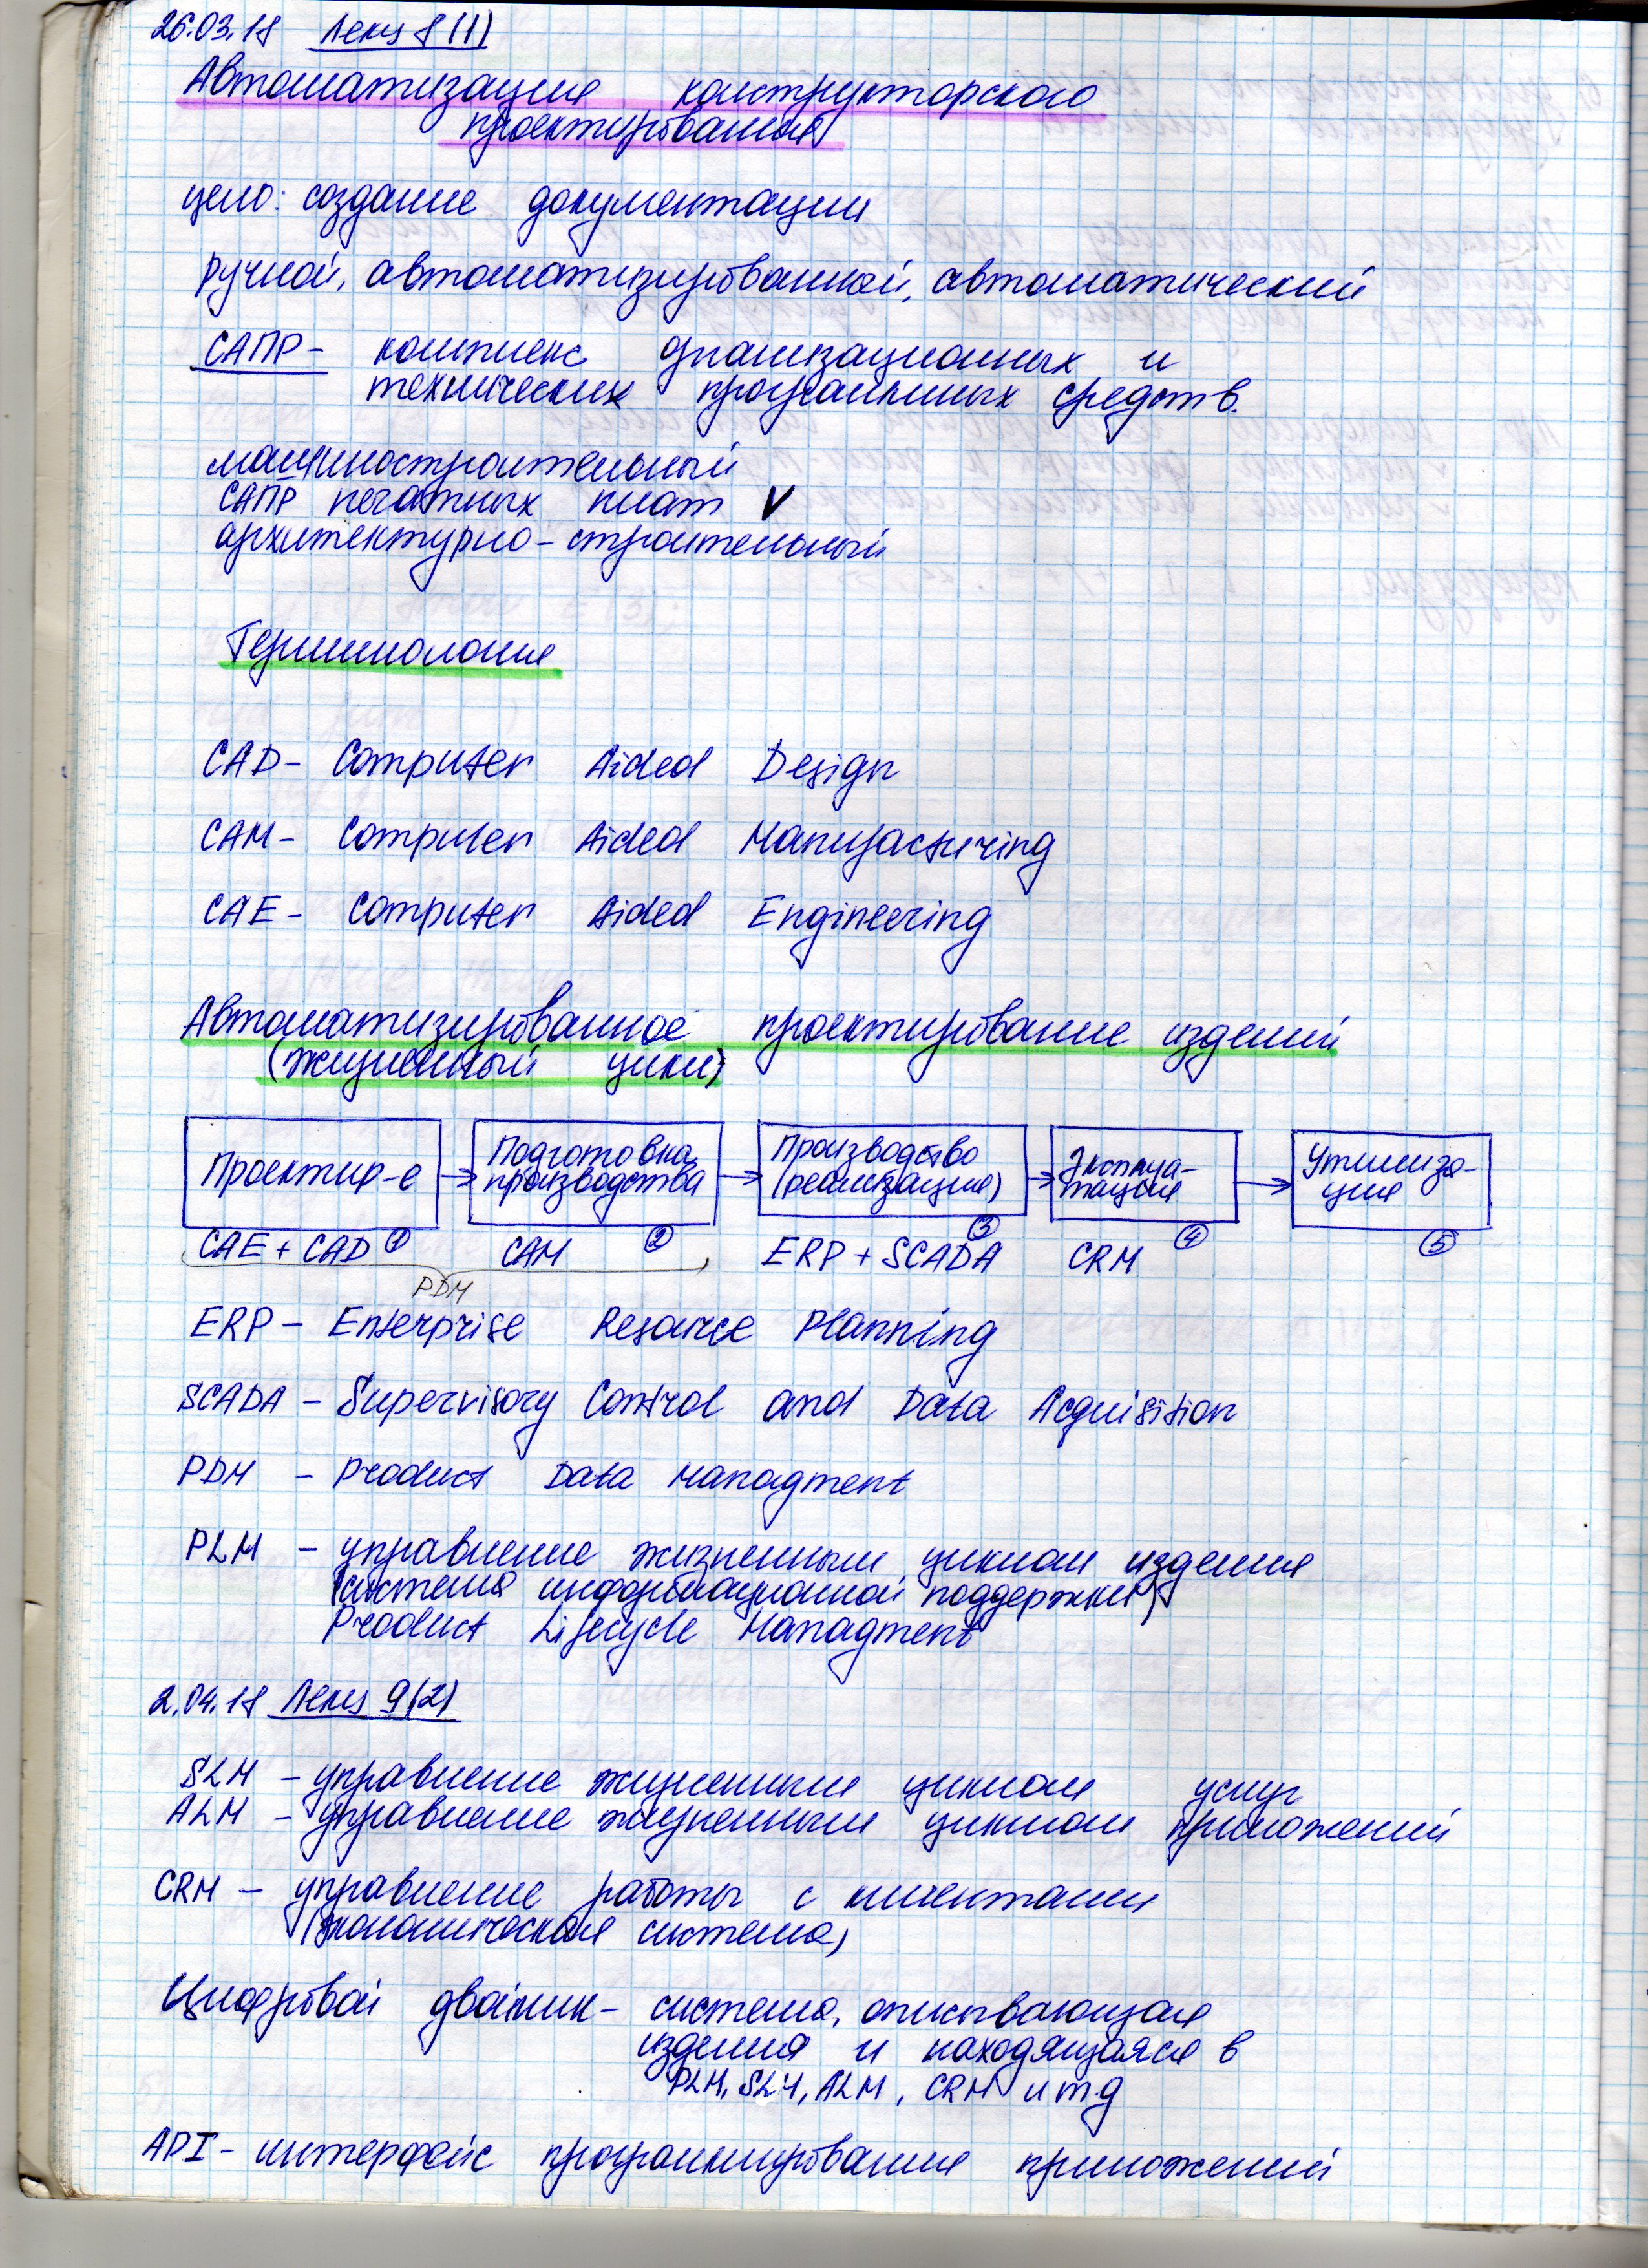 26.03.18 Лекц 8 (1)
Автоматизация конструкторского
проектирования
цель: создание документации
ручной, автоматизированный, автоматический
САПР - комплекс организационных и
технических программных средств.
машиностроительный
САПР печатных плат V
архитектурно-строительный
Терминология
CAD - Computer Aided Design
CAM - Computer Aided Manufacturing
CAE - Computer Aided Engineering
Автоматизированное проектирование изделий
(жизненный цикл)
Проектир-е → Подготовка производства → Производство (реализация) → Эксплуа-тация → Утилиза-ция
CAE + CAD ① CAM ② ERP + SCADA ③ CRM ④ ⑤
PDM
ERP - Enterprise Resource Planning
SCADA - Supervisory Control and Data Acquisition
PDM - Product Data Managment
PLM - управление жизненным циклом изделия
(система информационной поддержки)
Product Lifecycle Managment
2.04.18 Лекц 9(2)
SLM - управление жизненным циклом услуг
ALM - управление жизненным циклом приложений
CRM - управление работы с клиентами
(экономическая система)
Цифровой двойник - система, описывающая
изделия и находящаяся в
PLM, SLM, ALM, CRM и тд
API - интерфейс программирования приложений